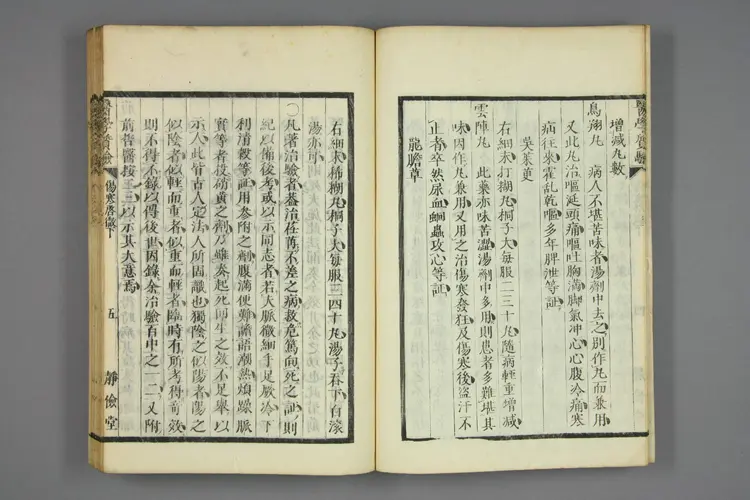 增減丸數
鳥翔丸 病人不堪苦味者湯劑中去之別作丸而兼用
又此丸治嘔涎頭痛嘔吐胸滿脚氣冲心心腹冷痛寒
疝往來霍乱乾嘔多年脾泄等証
吳茱萸
右細末打糊丸桐子大每服二三十丸隨病輕重增減
雲陣丸 此藥亦味苦澀湯劑中多用則患者多難堪其
味因作丸兼用又用之治傷寒發狂及傷寒後盜汗不
止者卒然尿血蛔蟲攻心等証
龍膽草
右細末稀糊丸桐子大每服三四十丸湯子吞下白滾
湯亦可
〇凡著治驗者蓋治荏苒不差之病救危篤向死之証則
紀以備後考或以示同志者若大脈微細手足厥冷下
利清穀等証用參附之劑腹滿便難譫語潮熱煩躁脈
實等者投硝黃之劑乃雖奏起死回生之效不足舉以
示人此皆古人定法人所固識也獨陰之似陽者陽之
似陰者似輕而重者似重而輕者臨時有所考得奇效
則不得不錄以得後世因錄余治驗百中之一二又附
前哲醫按王三以示其大意焉
醫學質驗 傷寒啓微下 五 靜儉堂
醫學質驗